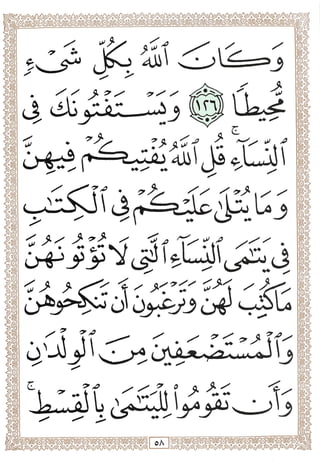 وَكَانَ ٱللَّهُ بِكُلِّ شَىْءٍ
مُّحِيطًا ١٢٦ وَيَسْتَفْتُونَكَ فِى
ٱلنِّسَآءِ ۖ قُلِ ٱللَّهُ يُفْتِيكُمْ فِيهِنَّ
وَمَا يُتْلَىٰ عَلَيْكُمْ فِى ٱلْكِتَـٰبِ
فِى يَتَـٰمَى ٱلنِّسَآءِ ٱلَّـٰتِى لَا تُؤْتُونَهُنَّ
مَا كُتِبَ لَهُنَّ وَتَرْغَبُونَ أَن تَنكِحُوهُنَّ
وَٱلْمُسْتَضْعَفِينَ مِنَ ٱلْوِلْدَٰنِ
وَأَن تَقُومُوا۟ لِلْيَتَـٰمَىٰ بِٱلْقِسْطِ ۚ
٥٨